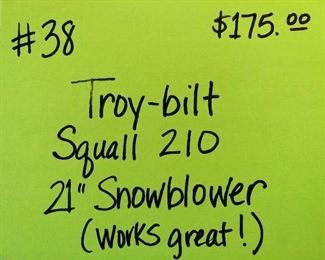 #38 $175.00
Troy-bilt
Squall 210
21" Snowblower
(works great!)